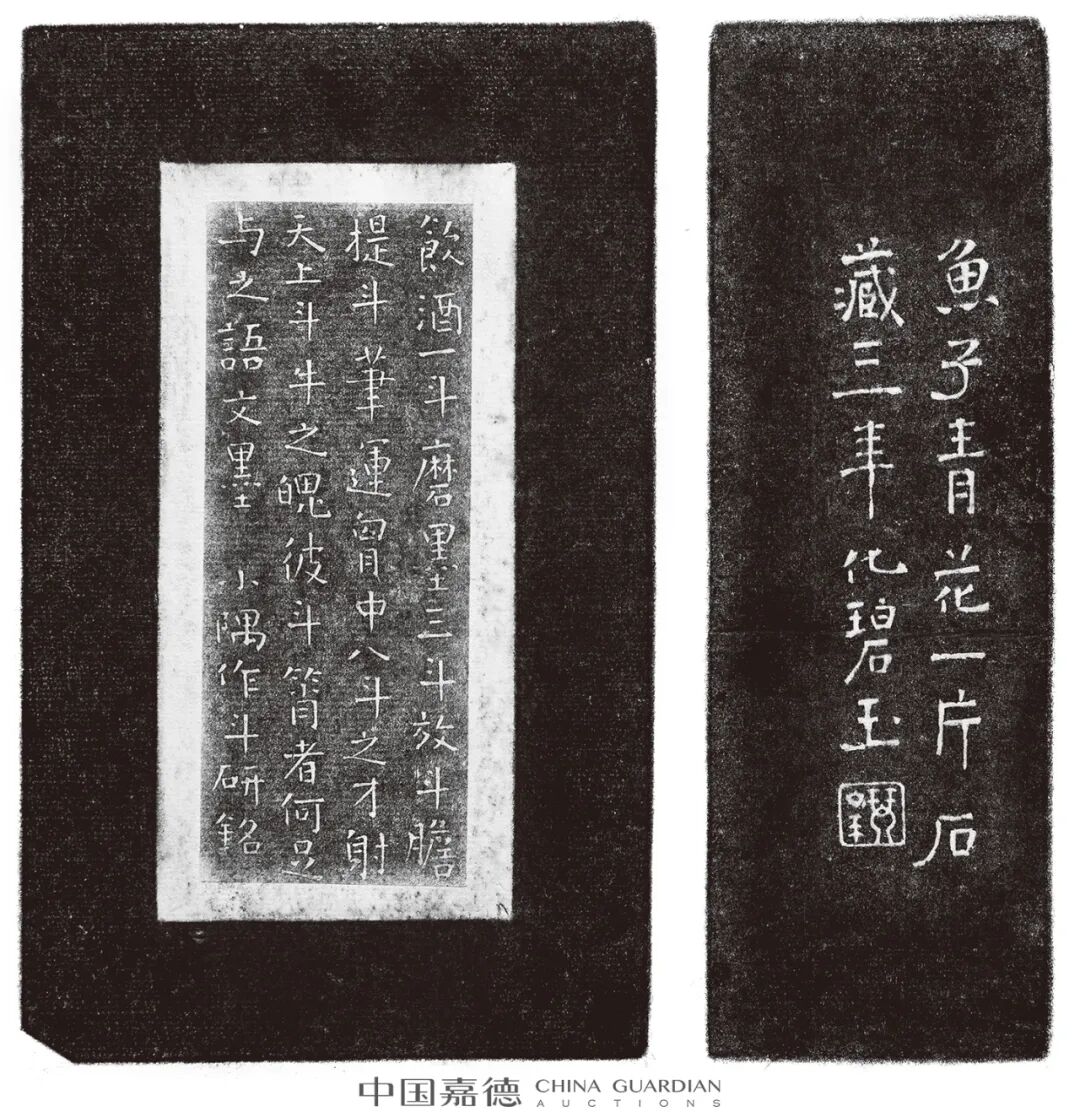 飲酒一斗磨墨三斗放斗膽
提斗筆運胷中八斗之才射
天上斗牛之魄彼斗筲者何足
与之語文墨 小隅作斗研銘
魚子青花一片石
藏三年化碧玉
中国嘉德 CHINA GUARDIAN
AUCTIONS